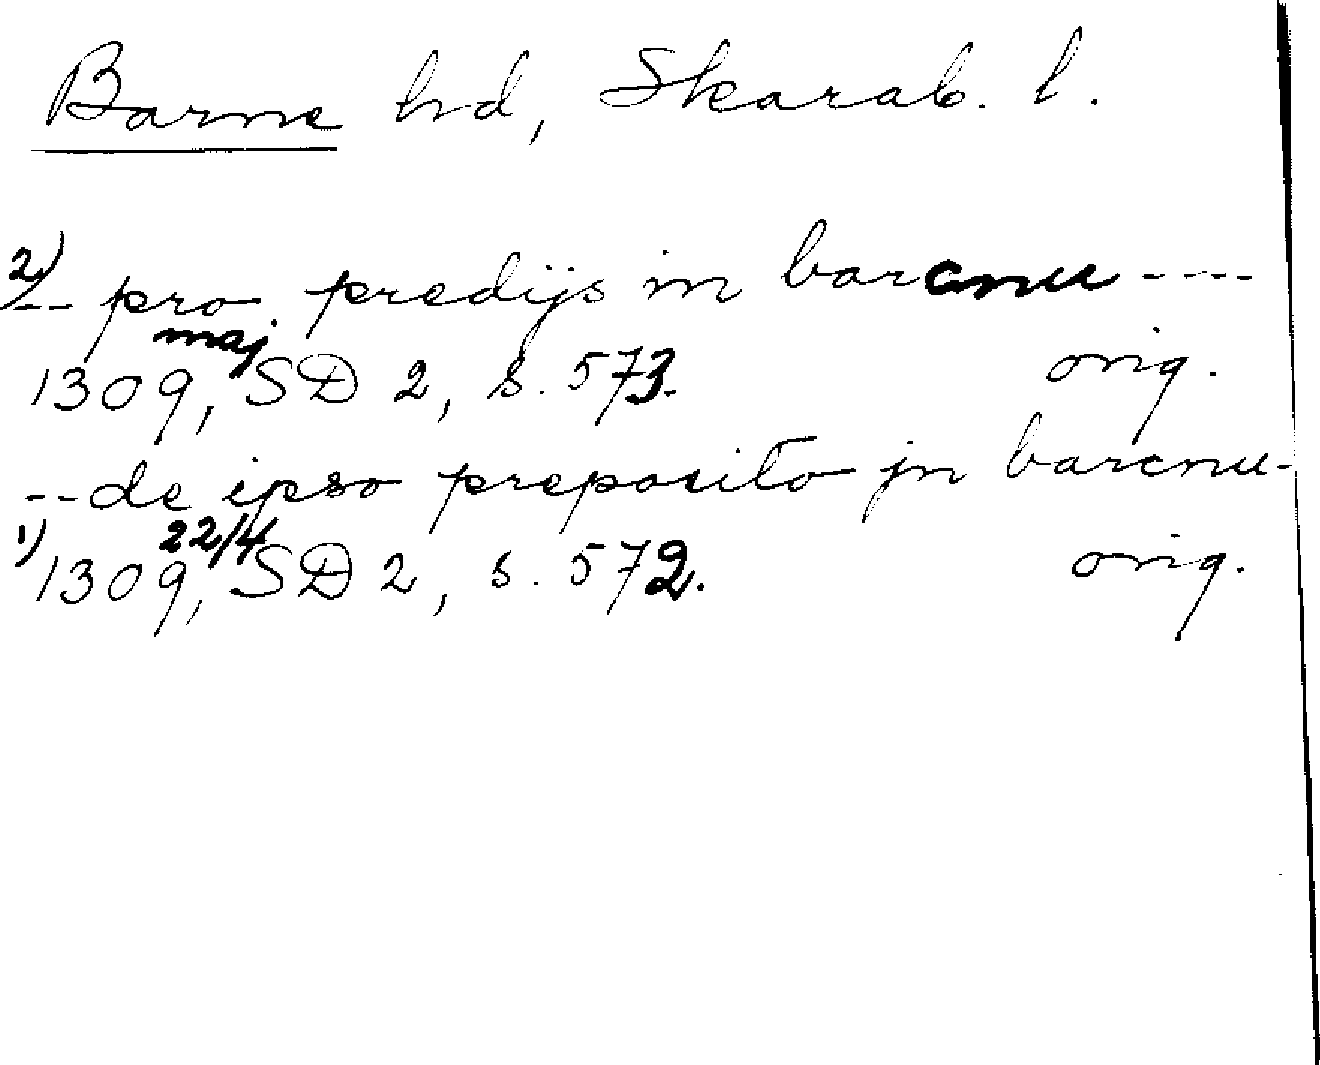 Barne hd, Skarab. l.
2) -- pro predijs in barcnu ----
maj
1309, SD 2, s. 573. orig.
-- de ipso preposito jn barcnu-
1) 22/4
1309, SD 2, s. 572. orig.